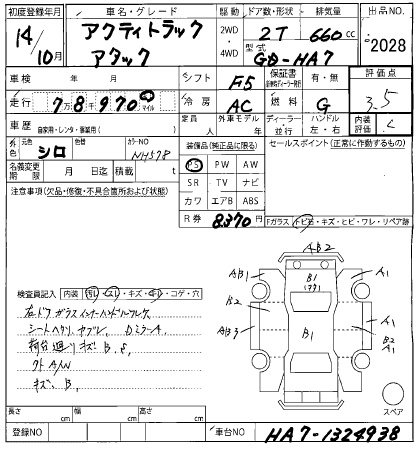 初度登録年月 車名・グレード 駆動 ドア数・形状 排気量 出品NO.
14/10月 アクティトラック アタック 2WD・4WD 2T 660cc 2028
型式 GD-HA7
車検 年 月 シフト F5 保証書 有・無 評価点 3.5
走行 7万8千970 マイル 冷房 AC 燃料 G
車歴 自家用・レンタ・事業用( ) 定員 人 外車モデル ディーラー・並行 ハンドル 左・右 内装
外色 元色 シロ 色替 カラーNO NH578 装備品(純正品に限る) セールスポイント(正常に動作するもの)
名義変更期限 月 日迄 積載 t PS PW AW
注意事項(欠品・修復・不具合箇所および状態) SR TV ナビ
カワ エアB ABS
R券 8370 円 Fガラス トビ石・キズ・ヒビ・ワレ・リペア跡
AB2
AB1 B1 A1
B2 A1
B1
B2
A1
検査員記入 内装 キズ・コゲ・穴
右ドアガラス
シートヘタリ、ヤブレ、DミラーA
荷台廻りキズB、
A/W
キズ、B、
スペア
長さ cm 幅 cm 高さ cm
登録NO 車台NO HA7-1324938